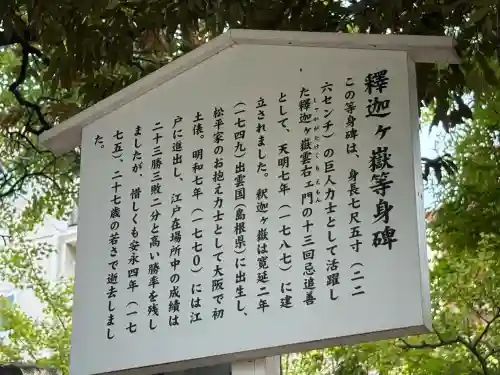 釋迦ヶ嶽等身碑
この等身碑は、身長七尺五寸（二二
六センチ）の巨人力士として活躍し
た釋迦ヶ嶽雲右ェ門の十三回忌追善
しゃかがたけくもえもん
として、天明七年（一七八七）に建
立されました。釈迦ヶ嶽は寛延二年
（一七四九）出雲国（島根県）に出生し、
松平家のお抱え力士として大阪で初
土俵。明和七年（一七七〇）には江
戸に進出し、江戸在場所中の成績は
二十三勝三敗二分と高い勝率を残し
ましたが、惜しくも安永四年（一七
七五）、二十七歳の若さで逝去しまし
た。